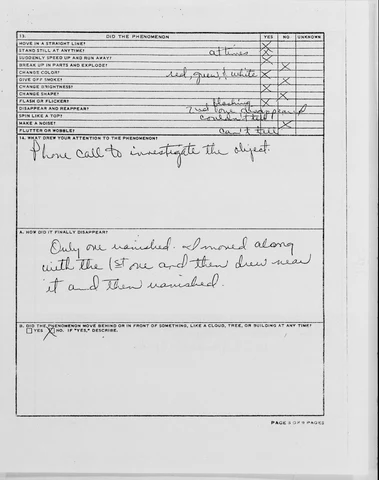 13. DID THE PHENOMENON YES NO UNKNOWN
MOVE IN A STRAIGHT LINE? X
STAND STILL AT ANYTIME? at times X
SUDDENLY SPEED UP AND RUN AWAY? X
BREAK UP IN PARTS AND EXPLODE? X
CHANGE COLOR? red, green, & white X
GIVE OFF SMOKE? X
CHANGE BRIGHTNESS? X
CHANGE SHAPE? X
FLASH OR FLICKER? flashing X
DISAPPEAR AND REAPPEAR? 2nd one disappeared
SPIN LIKE A TOP? couldn't tell
MAKE A NOISE? X
FLUTTER OR WOBBLE? can't tell
14. WHAT DREW YOUR ATTENTION TO THE PHENOMENON?
Phone call to investigate the object.
A. HOW DID IT FINALLY DISAPPEAR?
Only one vanished. It moved along
with the 1st one and then drew near
it and then vanished.
B. DID THE PHENOMENON MOVE BEHIND OR IN FRONT OF SOMETHING, LIKE A CLOUD, TREE, OR BUILDING AT ANY TIME?
YES X NO. IF "YES," DESCRIBE.
PAGE OF 9 PAGES